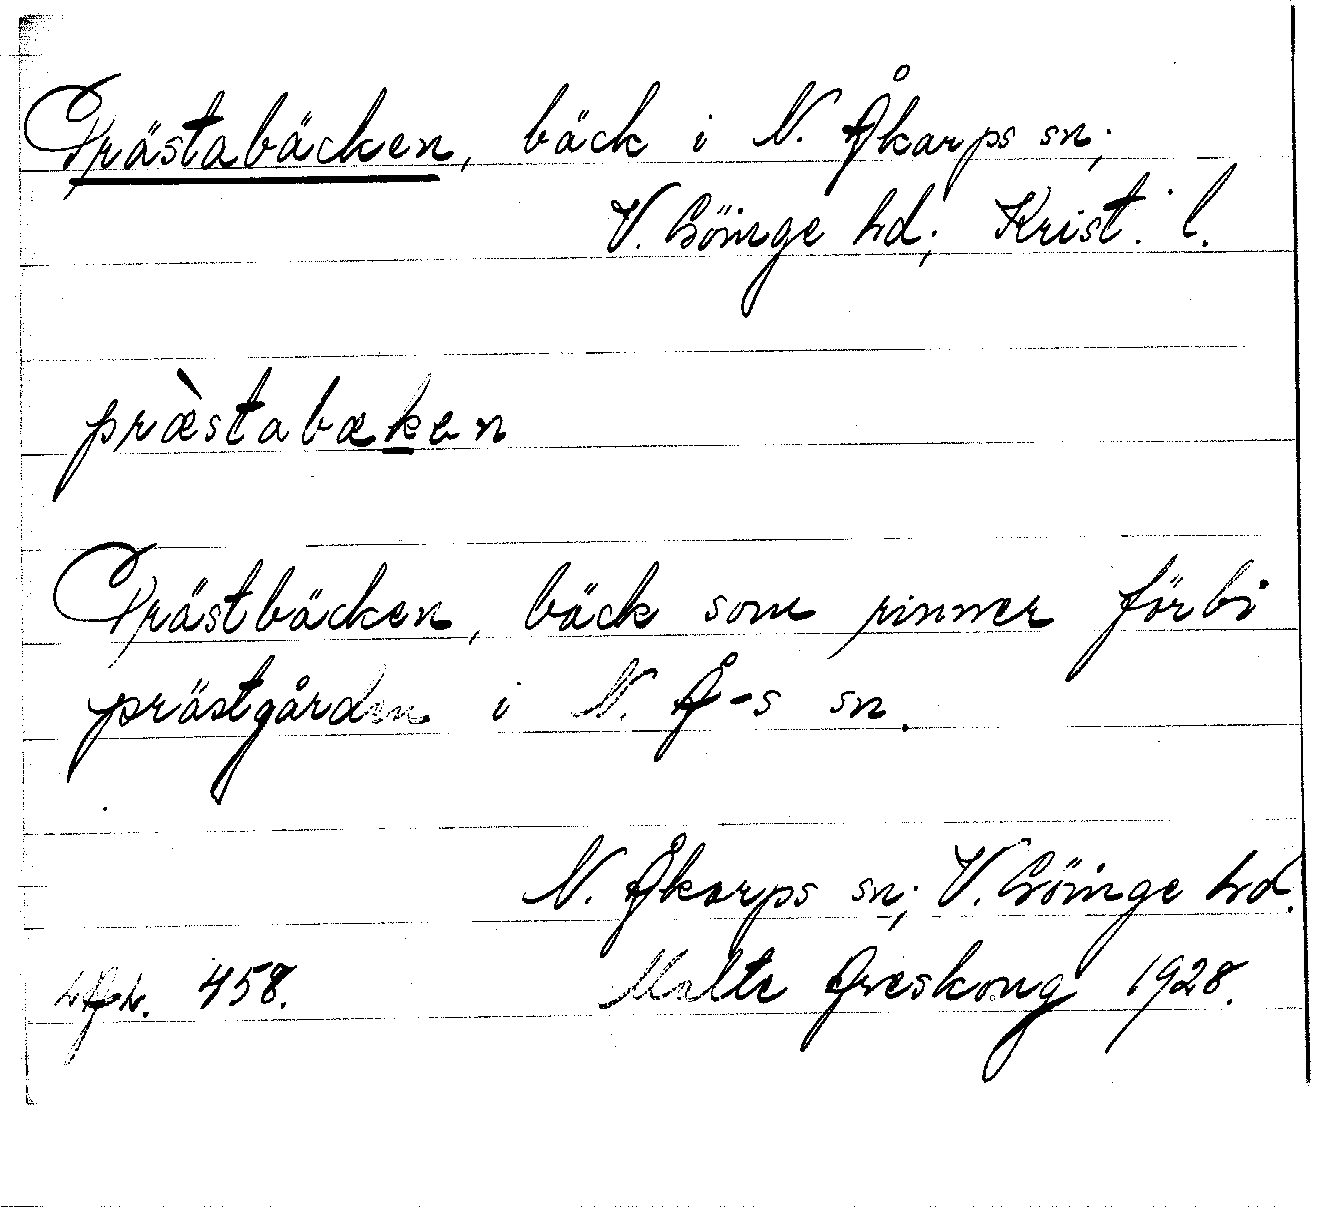 Prästabäcken, bäck i N. Åkarps sn;
V. Göinge hd; Krist. l.
præ̀stabæken
Prästbäcken, bäck som rinner förbi
prästgården i N. Å-s sn.
N. Åkarps sn; V. Göinge hd.
458. Malte Areskoug 1928.